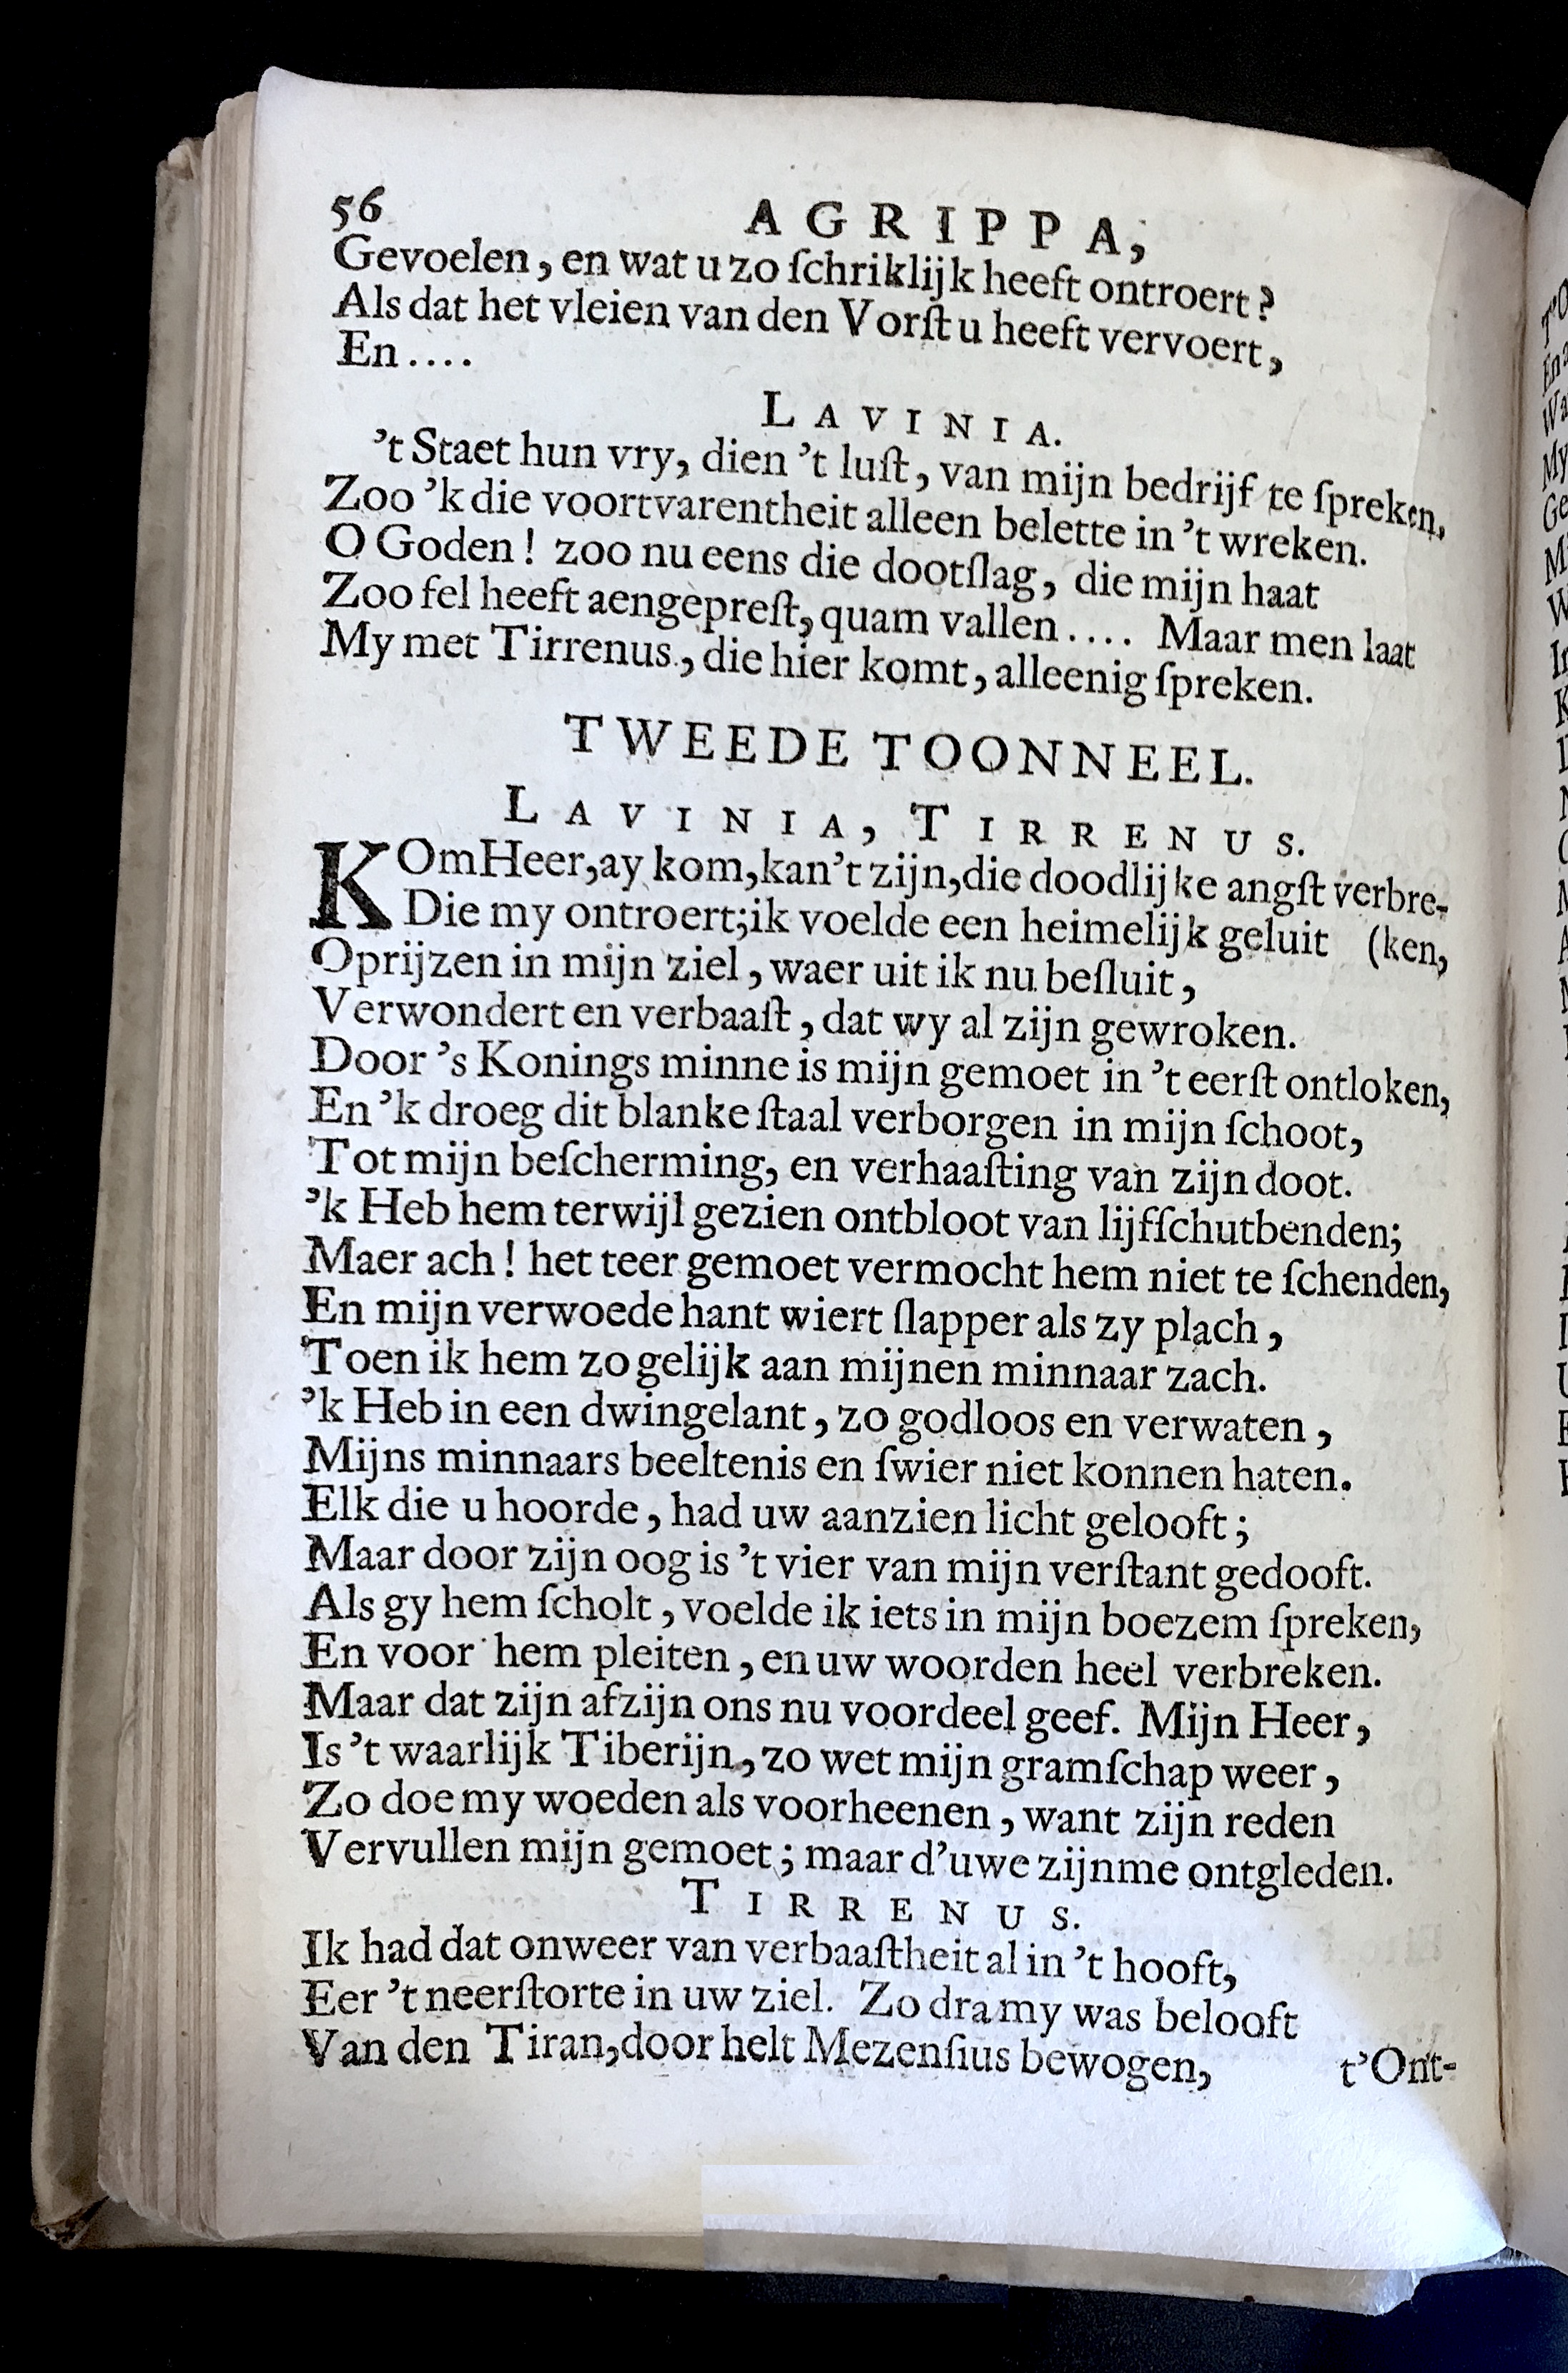 56 AGRIPPA,
Gevoelen, en wat u zo ſchriklijk heeft ontroert?
Als dat het vleien van den Vorſt u heeft vervoert,
En....
LAVINIA.
't Staet hun vry, dien 't luſt, van mijn bedrijf te ſpreken,
Zoo 'k die voortvarentheit alleen belette in 't wreken.
O Goden! zoo nu eens die dootſlag, die mijn haat
Zoo fel heeft aengepreſt, quam vallen.... Maar men laat
My met Tirrenus, die hier komt, alleenig ſpreken.
TWEEDE TOONNEEL.
LAVINIA, TIRRENUS.
KOm Heer, ay kom, kan't zijn, die doodlijke angſt verbre-
Die my ontroert; ik voelde een heimelijk geluit (ken,
Oprijzen in mijn ziel, waer uit ik nu beſluit,
Verwondert en verbaaſt, dat wy al zijn gewroken.
Door 's Konings minne is mijn gemoet in 't eerſt ontloken,
En 'k droeg dit blanke ſtaal verborgen in mijn ſchoot,
Tot mijn beſcherming, en verhaaſting van zijn doot.
'k Heb hem terwijl gezien ontbloot van lijfſchutbenden;
Maer ach! het teer gemoet vermocht hem niet te ſchenden,
En mijn verwoede hant wiert ſlapper als zy plach,
Toen ik hem zo gelijk aan mijnen minnaar zach.
'k Heb in een dwingelant, zo godloos en verwaten,
Mijns minnaars beeltenis en ſwier niet konnen haten.
Elk die u hoorde, had uw aanzien licht gelooft;
Maar door zijn oog is 't vier van mijn verſtant gedooft.
Als gy hem ſcholt, voelde ik iets in mijn boezem ſpreken,
En voor hem pleiten, en uw woorden heel verbreken.
Maar dat zijn afzijn ons nu voordeel geef. Mijn Heer,
Is 't waarlijk Tiberijn, zo wet mijn gramſchap weer,
Zo doe my woeden als voorheenen, want zijn reden
Vervullen mijn gemoet; maar d'uwe zijn me ontgleden.
TIRRENUS.
Ik had dat onweer van verbaaſtheit al in 't hooft,
Eer 't neerſtorte in uw ziel. Zo dra my was belooft
Van den Tiran, door helt Mezenſius bewogen,
t'Ont-